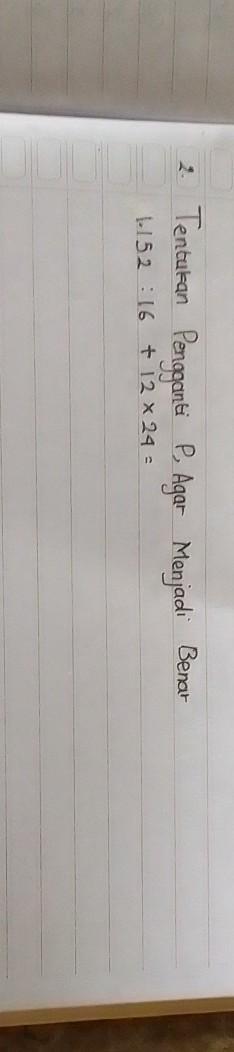 2. Tentukan Pengganti P, Agar Menjadi Benar
1.152 : 16 + 12 x 24 =